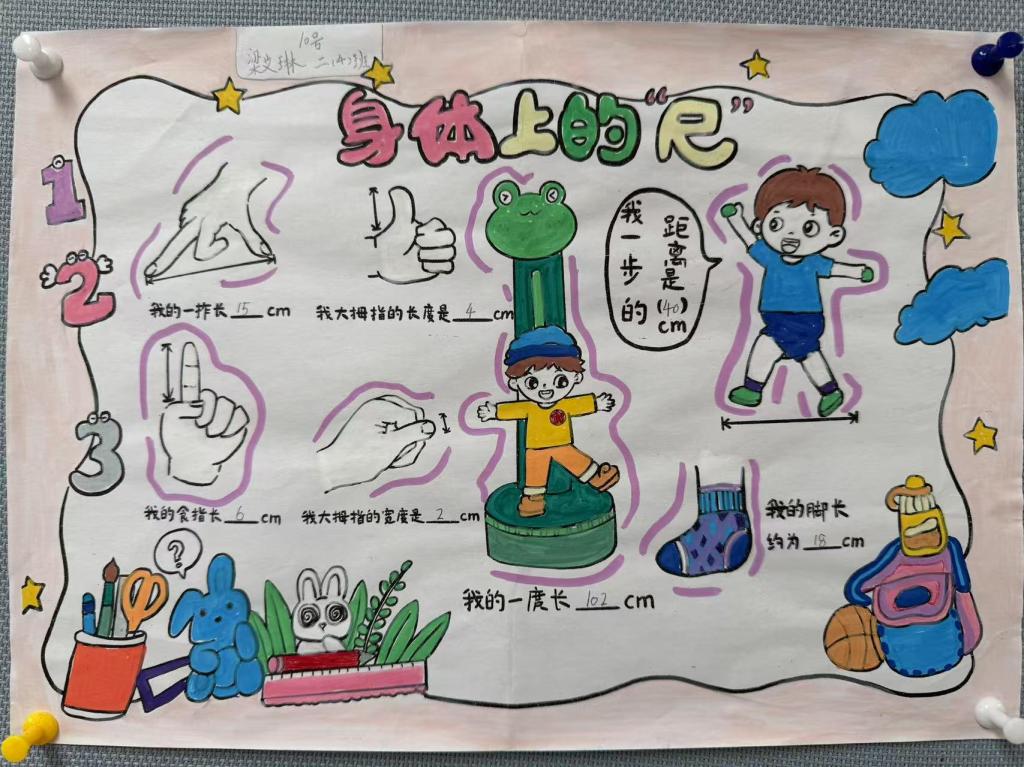 10号
梁文琳 二(4)班
身体上的“尺”
1
2
3
我的一拃长 15 cm
我大拇指的长度是 4 cm
我一步的
距离是
(40)
cm
我的食指长 6 cm
我大拇指的宽度是 2 cm
我的脚长
约为 18 cm
?
我的一度长 102 cm